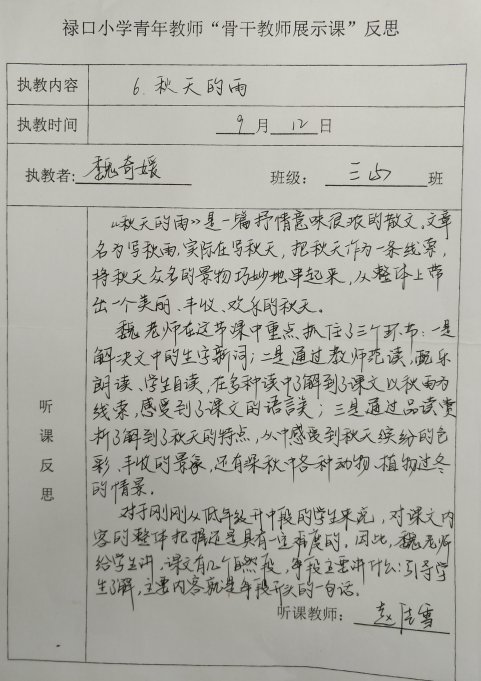 禄口小学青年教师“骨干教师展示课”反思
执教内容 6.秋天的雨
执教时间 9月12日
执教者:魏奇媛 班级: 班
听课反思
《秋天的雨》是一篇抒情意味很浓的散文。文章
名为写秋雨,实际在写秋天,把秋天作为一条线索,
将秋天众多的景物巧妙地串起来,从整体上带
出一个美丽、丰收、欢乐的秋天。
魏老师在这节课中重点抓住了三个环节:一是
解决文中的生字新词;二是通过教师范读,配乐
朗读、学生自读,在多种读中了解到了课文以秋雨为
线索,感受到了课文的语言美;三是通过品读赏
析了解到了秋天的特点,从中感受到秋天缤纷的色
彩、丰收的景象,还有深秋中各种动物、植物过冬
的情景。
对于刚刚从低年级升中段的学生来说,对课文内
容的整体把握还是具有一定难度的。因此,魏老师
给学生讲,课文有几个自然段,每段主要讲什么;引导学
生了解,主要内容就是每段开头的一句话。
听课教师:赵 雪